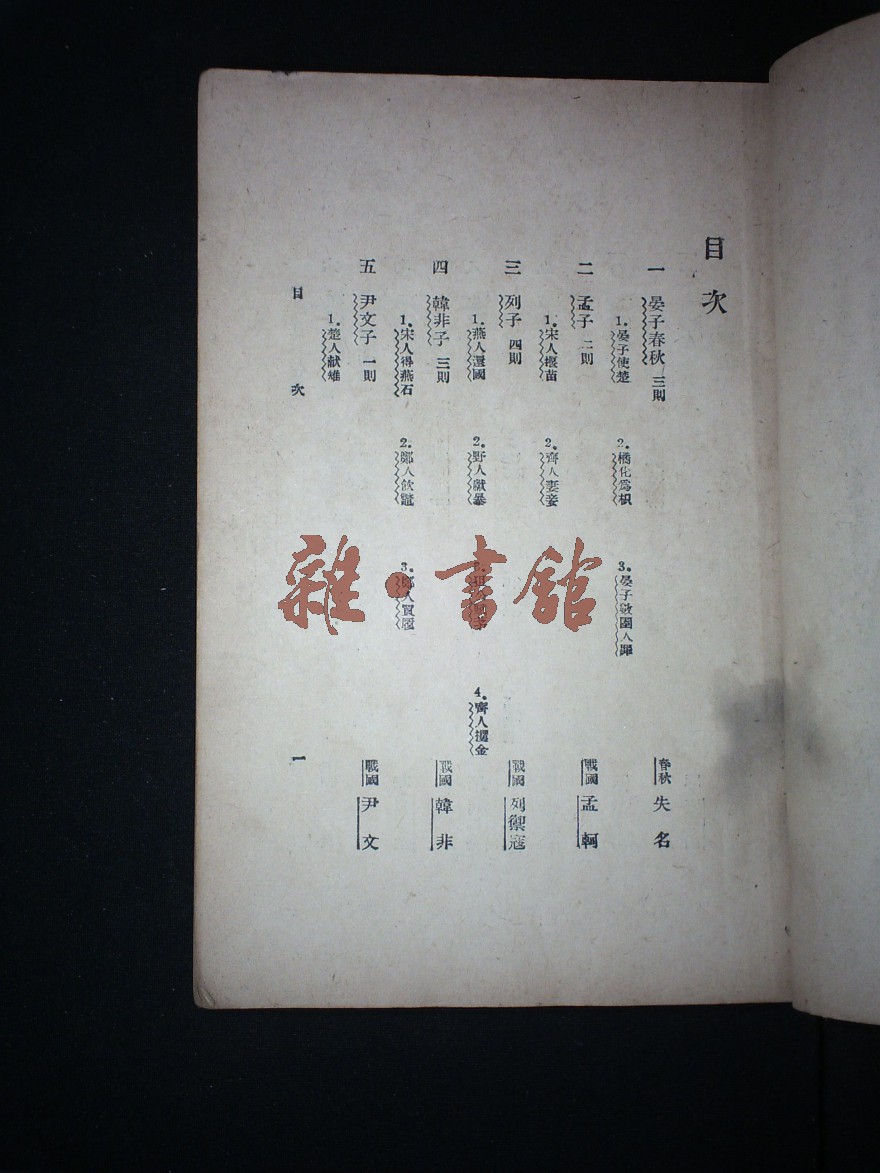 目次
一 晏子春秋 三則 春秋 失名
1.晏子使楚 2.橘化爲枳 3.晏子數圉人罪
二 孟子 二則 戰國 孟軻
1.宋人揠苗 2.齊人妻妾
三 列子 四則 戰國 列禦寇
1.燕人還國 2.野人獻暴 3. 4.齊人攫金
四 韓非子 三則 戰國 韓非
1.宋人得燕石 2.鄭人飲鼈 3.鄭人買履
五 尹文子 一則 戰國 尹文
1.楚人献雉
目次 一
雜·書館